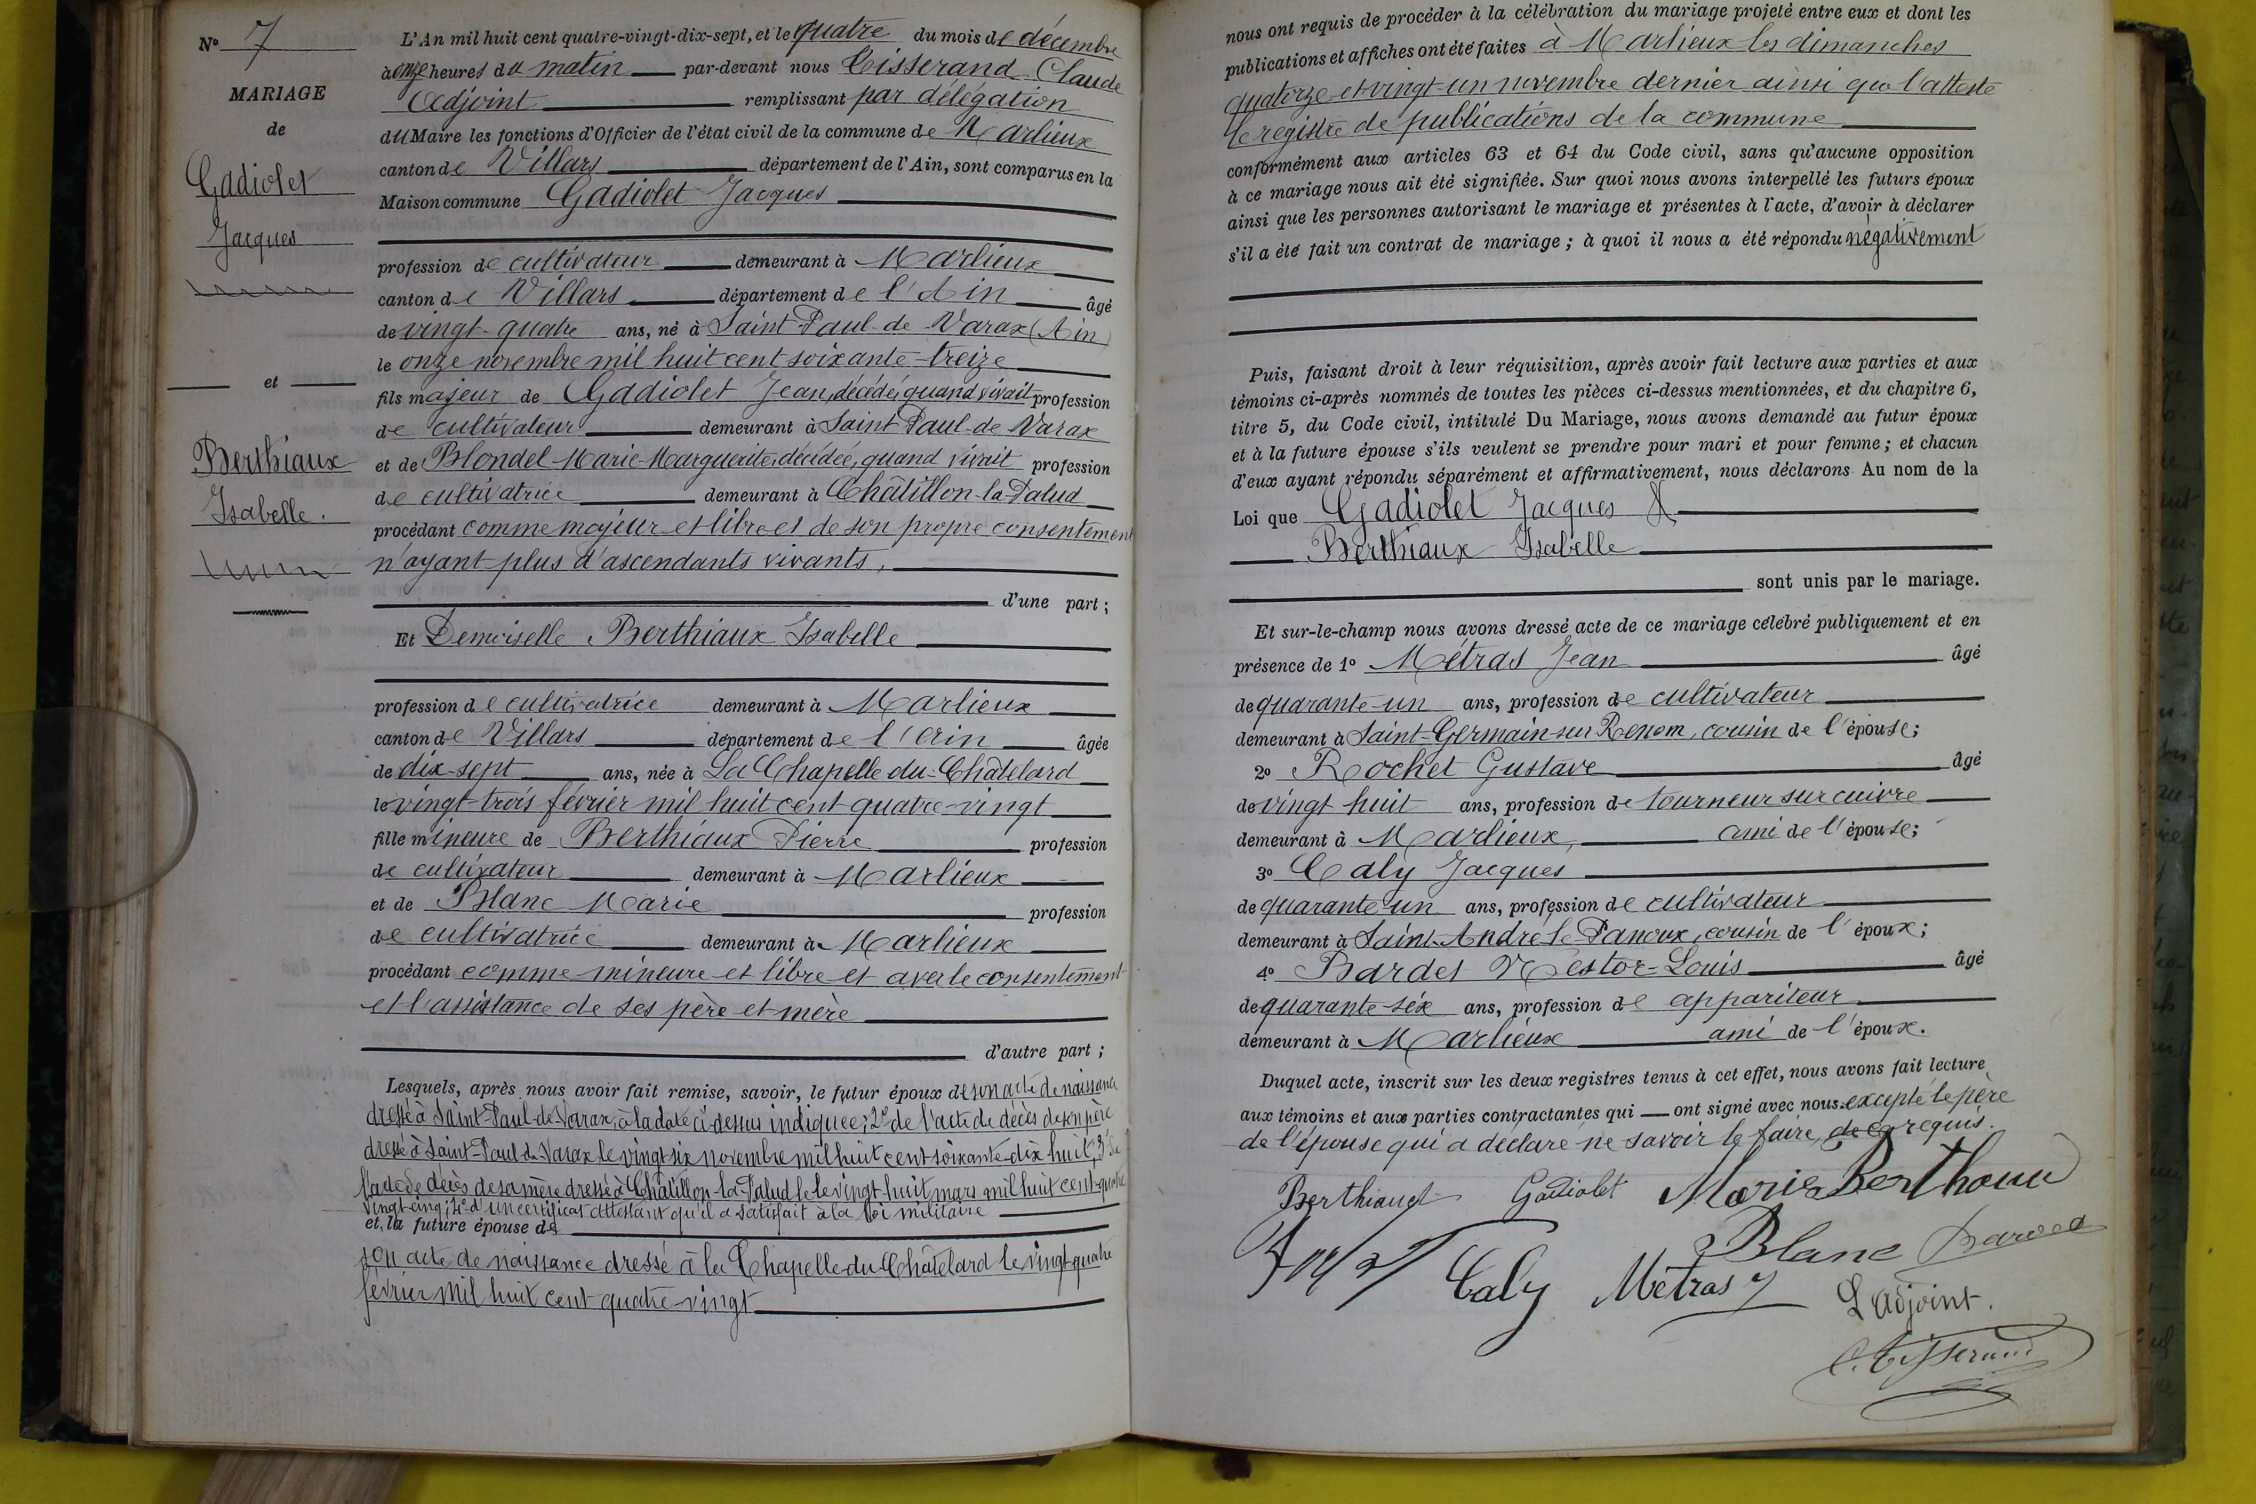 N° 7
MARIAGE
de
Gadiolet
Jacques
et
Berthiaux
Isabelle.
L'An mil huit cent quatre-vingt-dix-sept, et le quatre du mois de décembre
à onze heures du matin par-devant nous Tisserand Claude
Adjoint remplissant par délégation
du Maire les fonctions d'Officier de l'état civil de la commune de Marlieux
canton de Villars département de l'Ain, sont comparus en la
Maison commune Gadiolet Jacques
profession de cultivateur demeurant à Marlieux
canton de Villars département de l'Ain âgé
de vingt-quatre ans, né à Saint-Paul-de-Varax (Ain)
le onze novembre mil huit cent soixante-treize
fils majeur de Gadiolet Jean, décédé, quand vivait profession
de cultivateur demeurant à Saint Paul-de Varax
et de Blondel Marie-Marguerite, décédée, quand vivait profession
de cultivatrice demeurant à Châtillon-la-Palud
procédant comme majeur et libre et de son propre consentement
n'ayant plus d'ascendants vivants,
d'une part ;
Et Demoiselle Berthiaux Isabelle
profession de cultivatrice demeurant à Marlieux
canton de Villars département de l'Ain âgée
de dix-sept ans, née à La Chapelle-du-Châtelard
le vingt-trois février mil huit cent quatre-vingt
fille mineure de Berthiaux Pierre profession
de cultivateur demeurant à Marlieux
et de Blanc Marie profession
de cultivatrice demeurant à Marlieux
procédant comme mineure et libre et avec le consentement
et l'assistance de ses père et mère
d'autre part ;
Lesquels, après nous avoir fait remise, savoir, le futur époux de son acte de naissance
dressé à Saint-Paul-de-Varax, à la date ci-dessus indiquée; 2° de l'acte de décès de son père
dressé à Saint-Paul-de-Varax le vingt six novembre mil huit cent soixante-dix huit, 3° de
l'acte de décès de sa mère dressé à Châtillon-la-Palud le vingt-huit mars mil huit cent-quatre
vingt-cinq; 4° d'un certificat attestant qu'il a satisfait à la loi militaire
et, la future épouse de
son acte de naissance dressé à la Chapelle du Châtelard le vingt-quatre
février mil huit cent quatre-vingt
nous ont requis de procéder à la célébration du mariage projeté entre eux et dont les
publications et affiches ont été faites à Marlieux les dimanches
quatorze et vingt-un novembre dernier ainsi que l'atteste
le registre de publications de la commune
conformément aux articles 63 et 64 du Code civil, sans qu'aucune opposition
à ce mariage nous ait été signifiée. Sur quoi nous avons interpellé les futurs époux
ainsi que les personnes autorisant le mariage et présentes à l'acte, d'avoir à déclarer
s'il a été fait un contrat de mariage ; à quoi il nous a été répondu négativement
Puis, faisant droit à leur réquisition, après avoir fait lecture aux parties et aux
témoins ci-après nommés de toutes les pièces ci-dessus mentionnées, et du chapitre 6,
titre 5, du Code civil, intitulé Du Mariage, nous avons demandé au futur époux
et à la future épouse s'ils veulent se prendre pour mari et pour femme ; et chacun
d'eux ayant répondu séparément et affirmativement, nous déclarons Au nom de la
Loi que Gadiolet Jacques &
Berthiaux Isabelle
sont unis par le mariage.
Et sur-le-champ nous avons dressé acte de ce mariage célébré publiquement et en
présence de 1° Métras Jean âgé
de quarante-un ans, profession de cultivateur
demeurant à Saint-Germain-sur-Renom, cousin de l'épouse;
2° Rochet Gustave âgé
de vingt huit ans, profession de tourneur sur cuivre
demeurant à Marlieux, ami de l'épouse;
3° Caly Jacques
de quarante un ans, profession de cultivateur
demeurant à Saint-André-le-Panoux, cousin de l'époux;
4° Bardet Nestor-Louis âgé
de quarante-six ans, profession de appariteur
demeurant à Marlieux ami de l'époux.
Duquel acte, inscrit sur les deux registres tenus à cet effet, nous avons fait lecture
aux témoins et aux parties contractantes qui ont signé avec nous. excepté le père
de l'épouse qui a déclaré ne savoir le faire, de ce requis.
Berthiaud Gadiolet Marie Berthoux
Blanc Bardet
Caly Métras
L'adjoint.
C. Tisserand